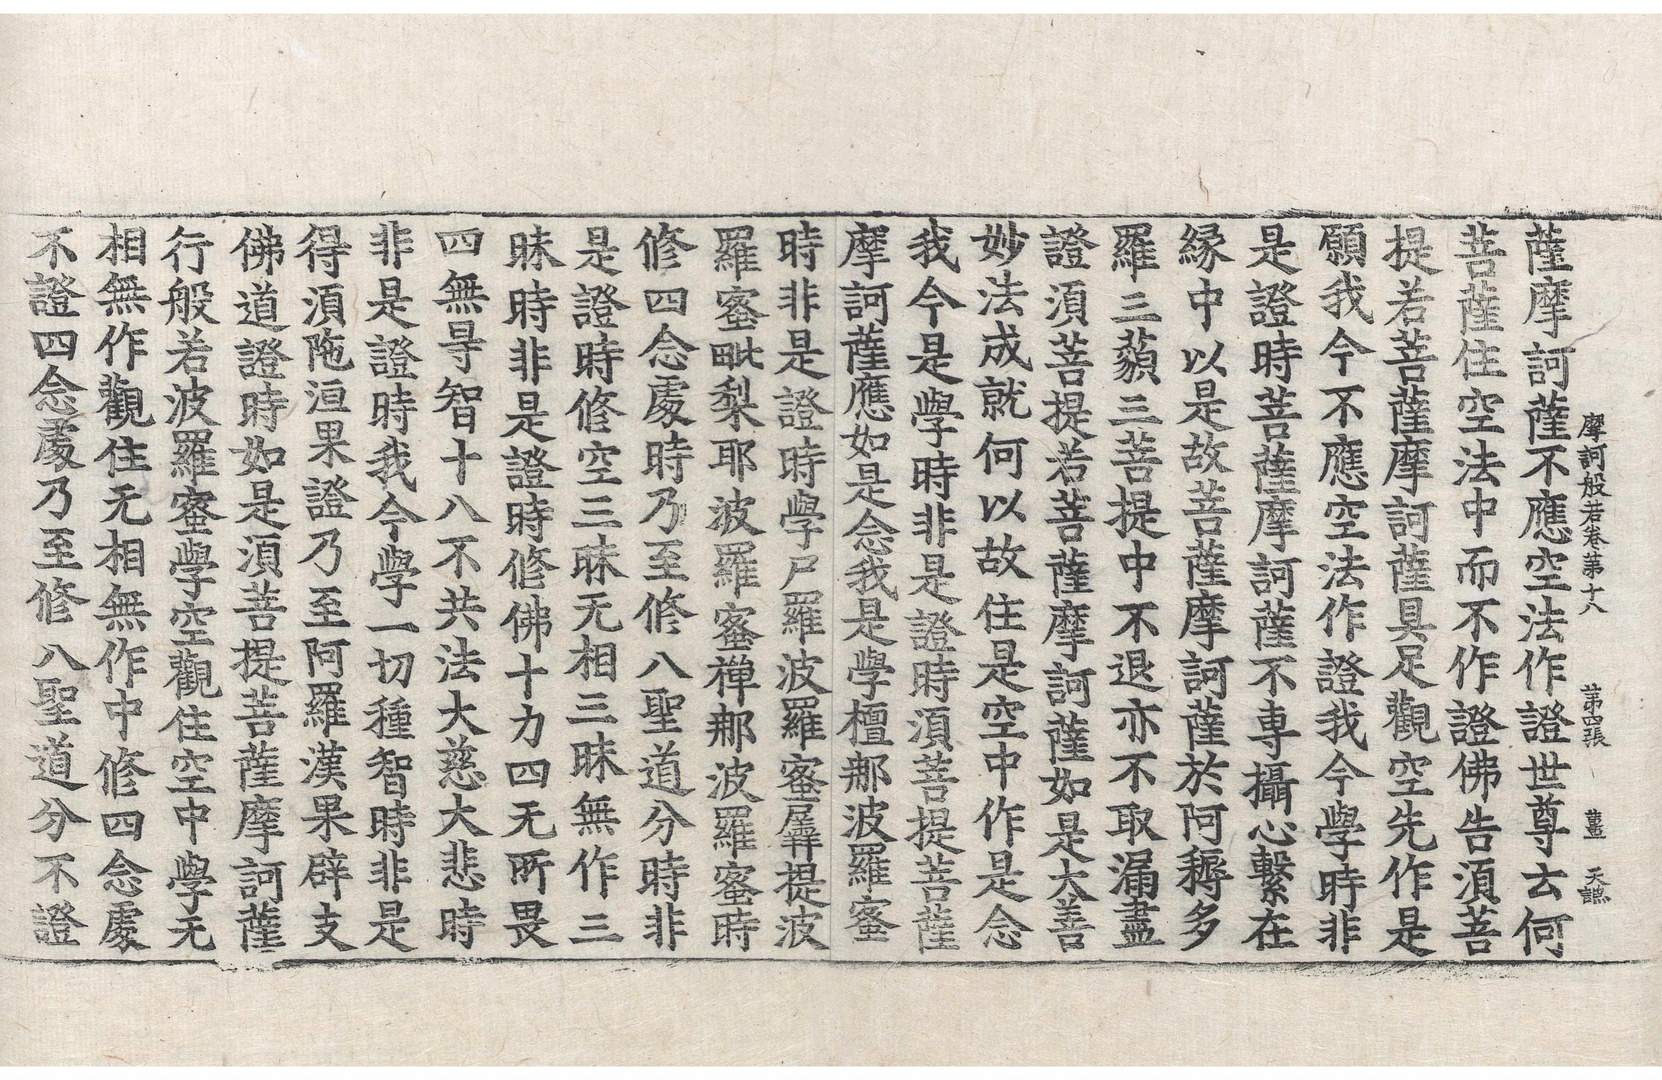 摩訶般若卷第十八 第四張 薑 天譙
薩摩訶薩不應空法作證世尊云何
菩薩住空法中而不作證佛告須菩
提若菩薩摩訶薩具足觀空先作是
願我今不應空法作證我今學時非
是證時菩薩摩訶薩不專攝心繫在
緣中以是故菩薩摩訶薩於阿耨多
羅三藐三菩提中不退亦不取漏盡
證須菩提若菩薩摩訶薩如是大善
妙法成就何以故住是空中作是念
我今是學時非是證時須菩提菩薩
摩訶薩應如是念我是學檀那波羅蜜
時非是證時學尸羅波羅蜜羼提波
羅蜜毗梨耶波羅蜜禪那波羅蜜時
修四念處時乃至修八聖道分時非
是證時修空三昧无相三昧無作三
昧時非是證時修佛十力四无所畏
四無㝵智十八不共法大慈大悲時
非是證時我今學一切種智時非是
得須陁洹果證乃至阿羅漢果辟支
佛道證時如是須菩提菩薩摩訶薩
行般若波羅蜜學空觀住空中學无
相無作觀住无相無作中修四念處
不證四念處乃至修八聖道分不證